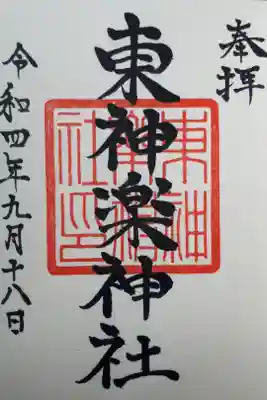 奉拝
東神楽神社
東神楽神社印
令和四年九月十八日